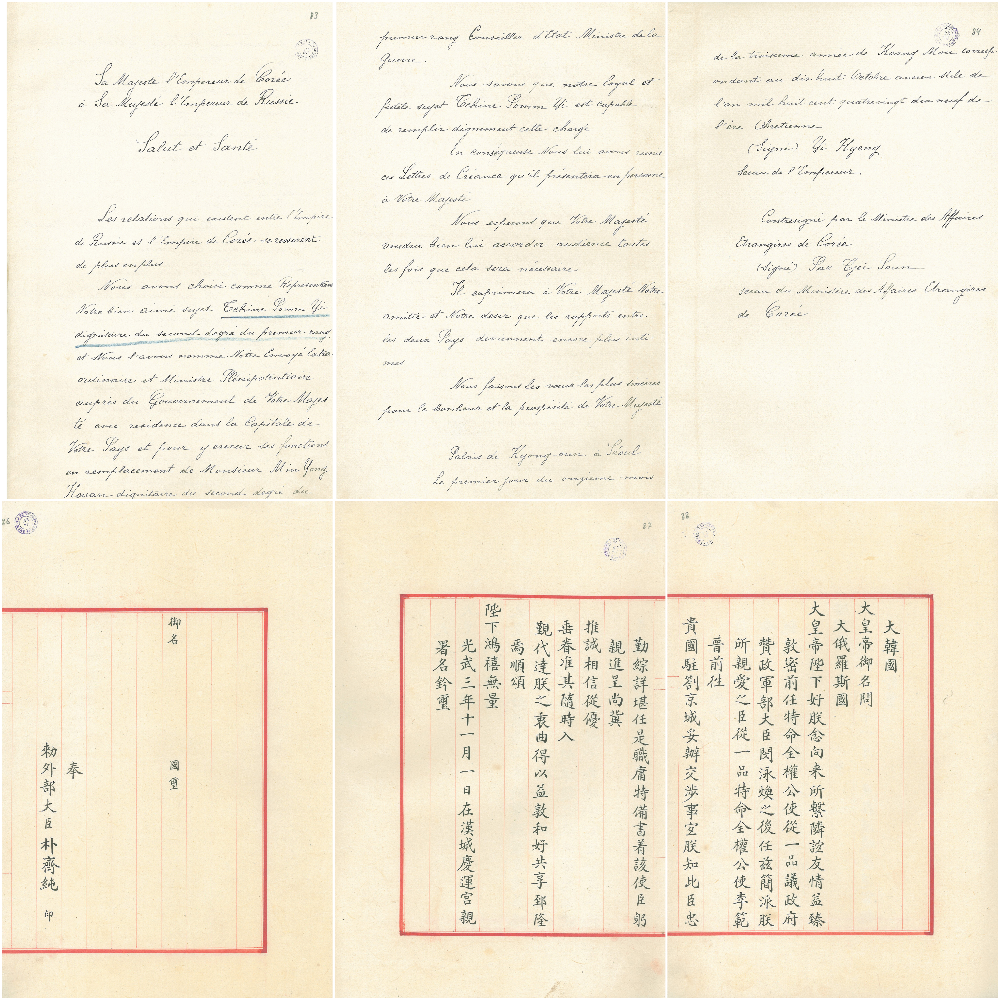 83
Sa Majesté l'Empereur de Corée
à Sa Majesté l'Empereur de Russie
Salut et Santé
Les relations qui existent entre l'Empire
de Russie et l'Empire de Corée resserrent
de plus en plus
Nous avons choisi comme Représentant
Notre bien aimé sujet Tchine Pomm Yi
dignitaire du second degré du premier rang
et Nous l'avons nommé Notre Envoyé Extra
ordinaire et Ministre Plénipotentiaire
auprès du Gouvernement de Votre Majes
té avec résidence dans la Capitale de
Votre Pays et pour y exercer ses fonctions
en remplacement de Monsieur Min Yong
Kouan dignitaire du second degré du
premier rang Conseiller d'Etat Ministre de la
Guerre.
Nous savons que notre loyal et
fidèle sujet Tchine Pomm Yi est capable
de remplir dignement cette charge
En conséquence Nous lui avons remis
ces Lettres de Créance qu'il présentera en personne
à Votre Majesté
Nous espérons que Votre Majesté
voudra bien lui accorder audience toutes
les fois que cela sera nécessaire.
Il exprimera à Votre Majesté Notre
amitié et Notre désir que les rapports entre
les deux Pays deviennent encore plus inti
mes
Nous faisons les vœux les plus sincères
pour le bonheur et la prospérité de Votre Majesté
Palais de Kyong-oun à Séoul
Le premier jour du onzième mois
84
de la troisième année de Kwang Mou corresp
ondant au dix huit Octobre ancien style de
l'an mil huit cent quatre vingt dix neuf de
l'ère Chrétienne
(Signé) Yi Hyong
Sceau de l'Empereur.
Contresigné par le Ministre des Affaires
Etrangères de Corée
(signé) Pak Tjei Soun
sceau du Ministère des Affaires Etrangères
de Corée
88
大韓國
大皇帝御名問
大俄羅斯國
大皇帝陛下好朕念向来所繫隣誼友情益臻
敦密前任特命全權公使從一品議政府
贊政軍部大臣閔泳煥之後任玆簡派朕
所親愛之臣從一品特命全權公使李範
晉前徃
貴國駐劄京城妥辦交渉事宜朕知此臣忠
87
勤綜詳堪任是職庸特備書着該使臣躬
親進呈尚冀
推誠相信從優
垂眷准其隨時入
覲代達朕之衷曲得以益敦和好共享郅隆
焉順頌
陛下鴻禧無量
光武三年十一月一日在漢城慶運宮親
署名鈐璽
86
御名 國璽
奉
勅外部大臣朴齊純 印